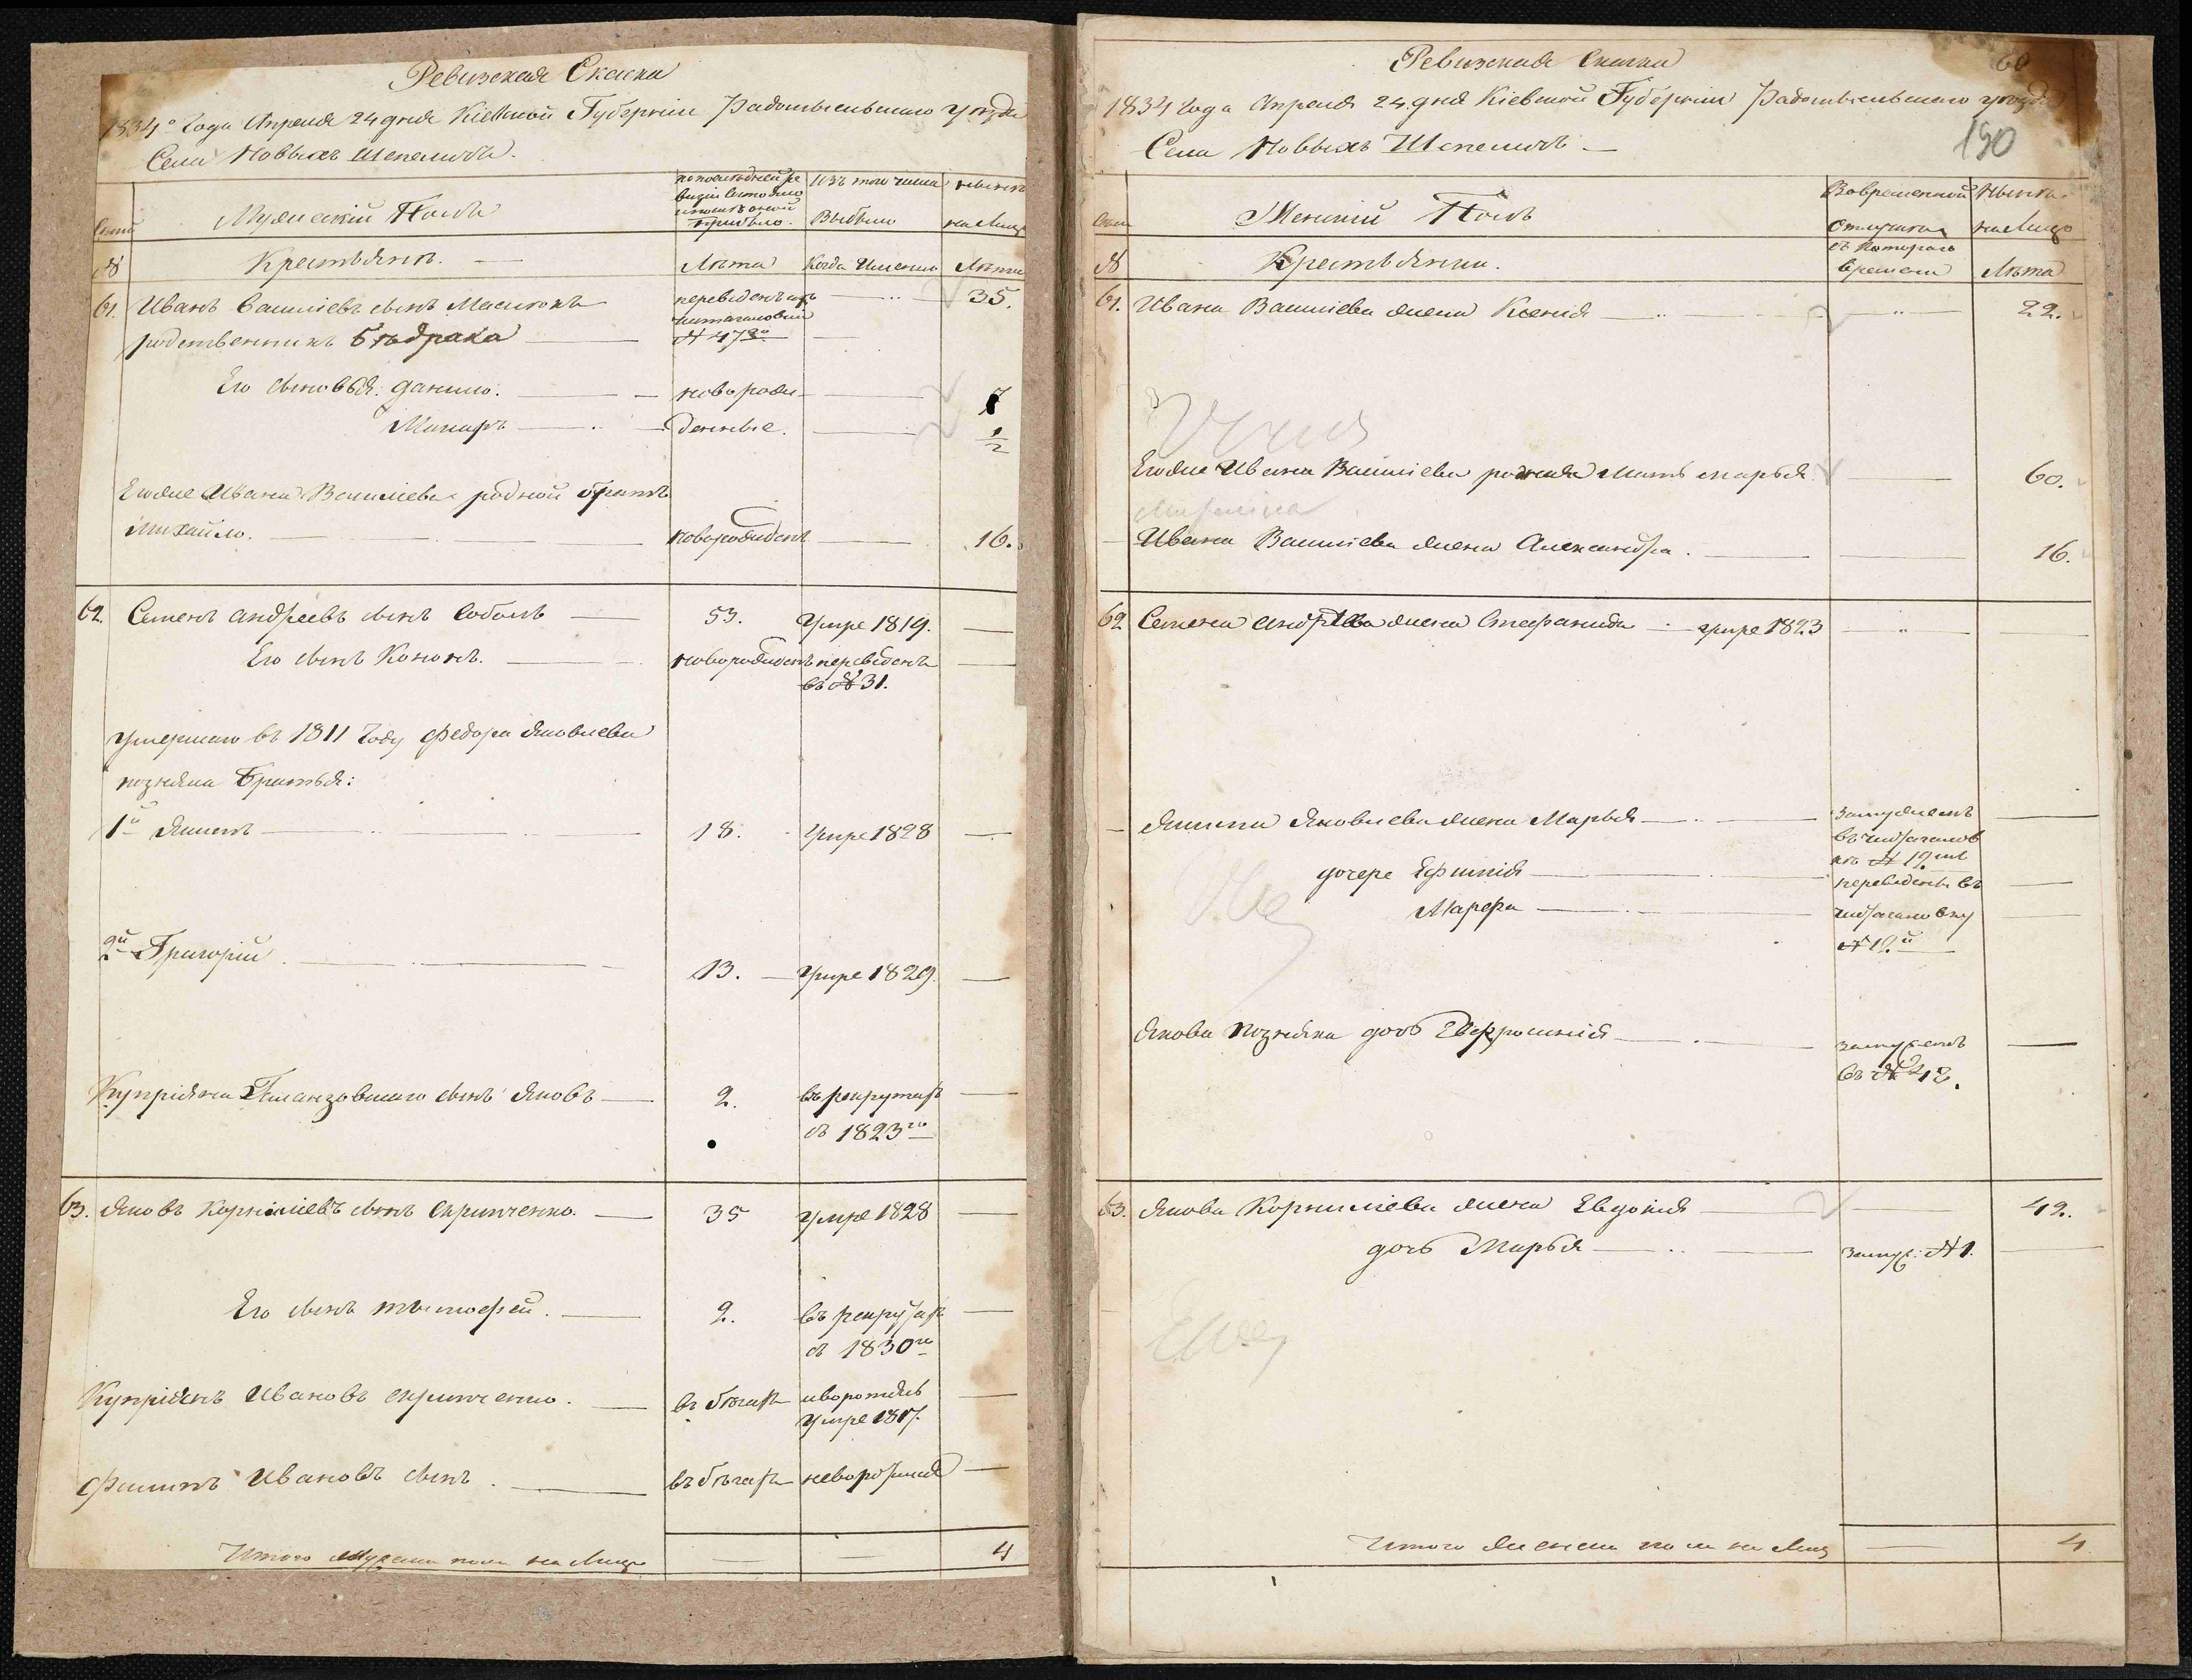 Ревизская Сказка
1834го года Апреля 24 дня Кіевской Губерніи Радомысльскаго уѣзда
Села Новыхъ Шепеличь.
Мужескій Полъ
по послѣдней ре
визіи состояло
и послѣ оной
прибыло.
Изъ того числа
Выбыло
нынѣ
на Лицо
№
Крестьянъ.
Лѣта
Когда Именно
Лѣта
61. Иванъ Василіевъ сынъ Масюкъ
переведенъ изъ
35.
родственникъ Бѣдрака
№ 47го
Его сыновья: Данило.
новорож
7
Макаръ
денные.
1/2
Егоже Ивана Василіева родной братъ
Михайло.
новорожденъ
16.
62. Семенъ Андреевъ сынъ Соболь
53.
Умре 1819.
Его сынъ Кононъ.
новорожденъ
переведенъ
въ № 31.
Умершаго въ 1811 году Федора Яковлева
Позняка Братья:
1й Якимъ
18.
Умре 1828
2й Григорій
13.
Умре 1829.
Купріяна сынъ Яковъ
2.
въ рекрутахъ
съ 1823го
63. Яковъ Корниліевъ сынъ Скрипченко.
35
Умре 1828
Его сынъ Тымофей.
2.
въ рекрутахъ
съ 1830го
Купріянъ Ивановъ Скрипченко.
въ бѣгахъ
иворотясь
Умре 1817.
Филипъ Ивановъ сынъ
въ бѣгахъ
неворотился
Итого Мужеска пола на Лицо
4
Ревизская Сказка
60
1834 года Апреля 24 дня Кіевской Губерніи Радомысльскаго уѣзда
190
Села Новыхъ Шепеличь
Женскій Полъ
Вовременной
Отлучкѣ
Нынѣ
на Лицо
№
Крестьянки.
съ Котораго
времени
Лѣта
61. Ивана Василіева жена Ксенія
22.
Егоже Ивана Василіева родная Мать Марья
60.
Ивана Василіева жена Александра.
16.
62 Семена Андреева жена Стефанида умре 1823
Якима Яковлева жена Марья
замужемъ
въ
№ 19мъ
дочере Ефимія
переведены въ
Марфа
№ 19.й
Якова Позняка дочь Евфросинія
замужемъ
въ № 42.
63. Якова Корниліева жена Евдокія
42.
дочь Марья
замуж: № 1.
Итого Женска пола на Лицо
4